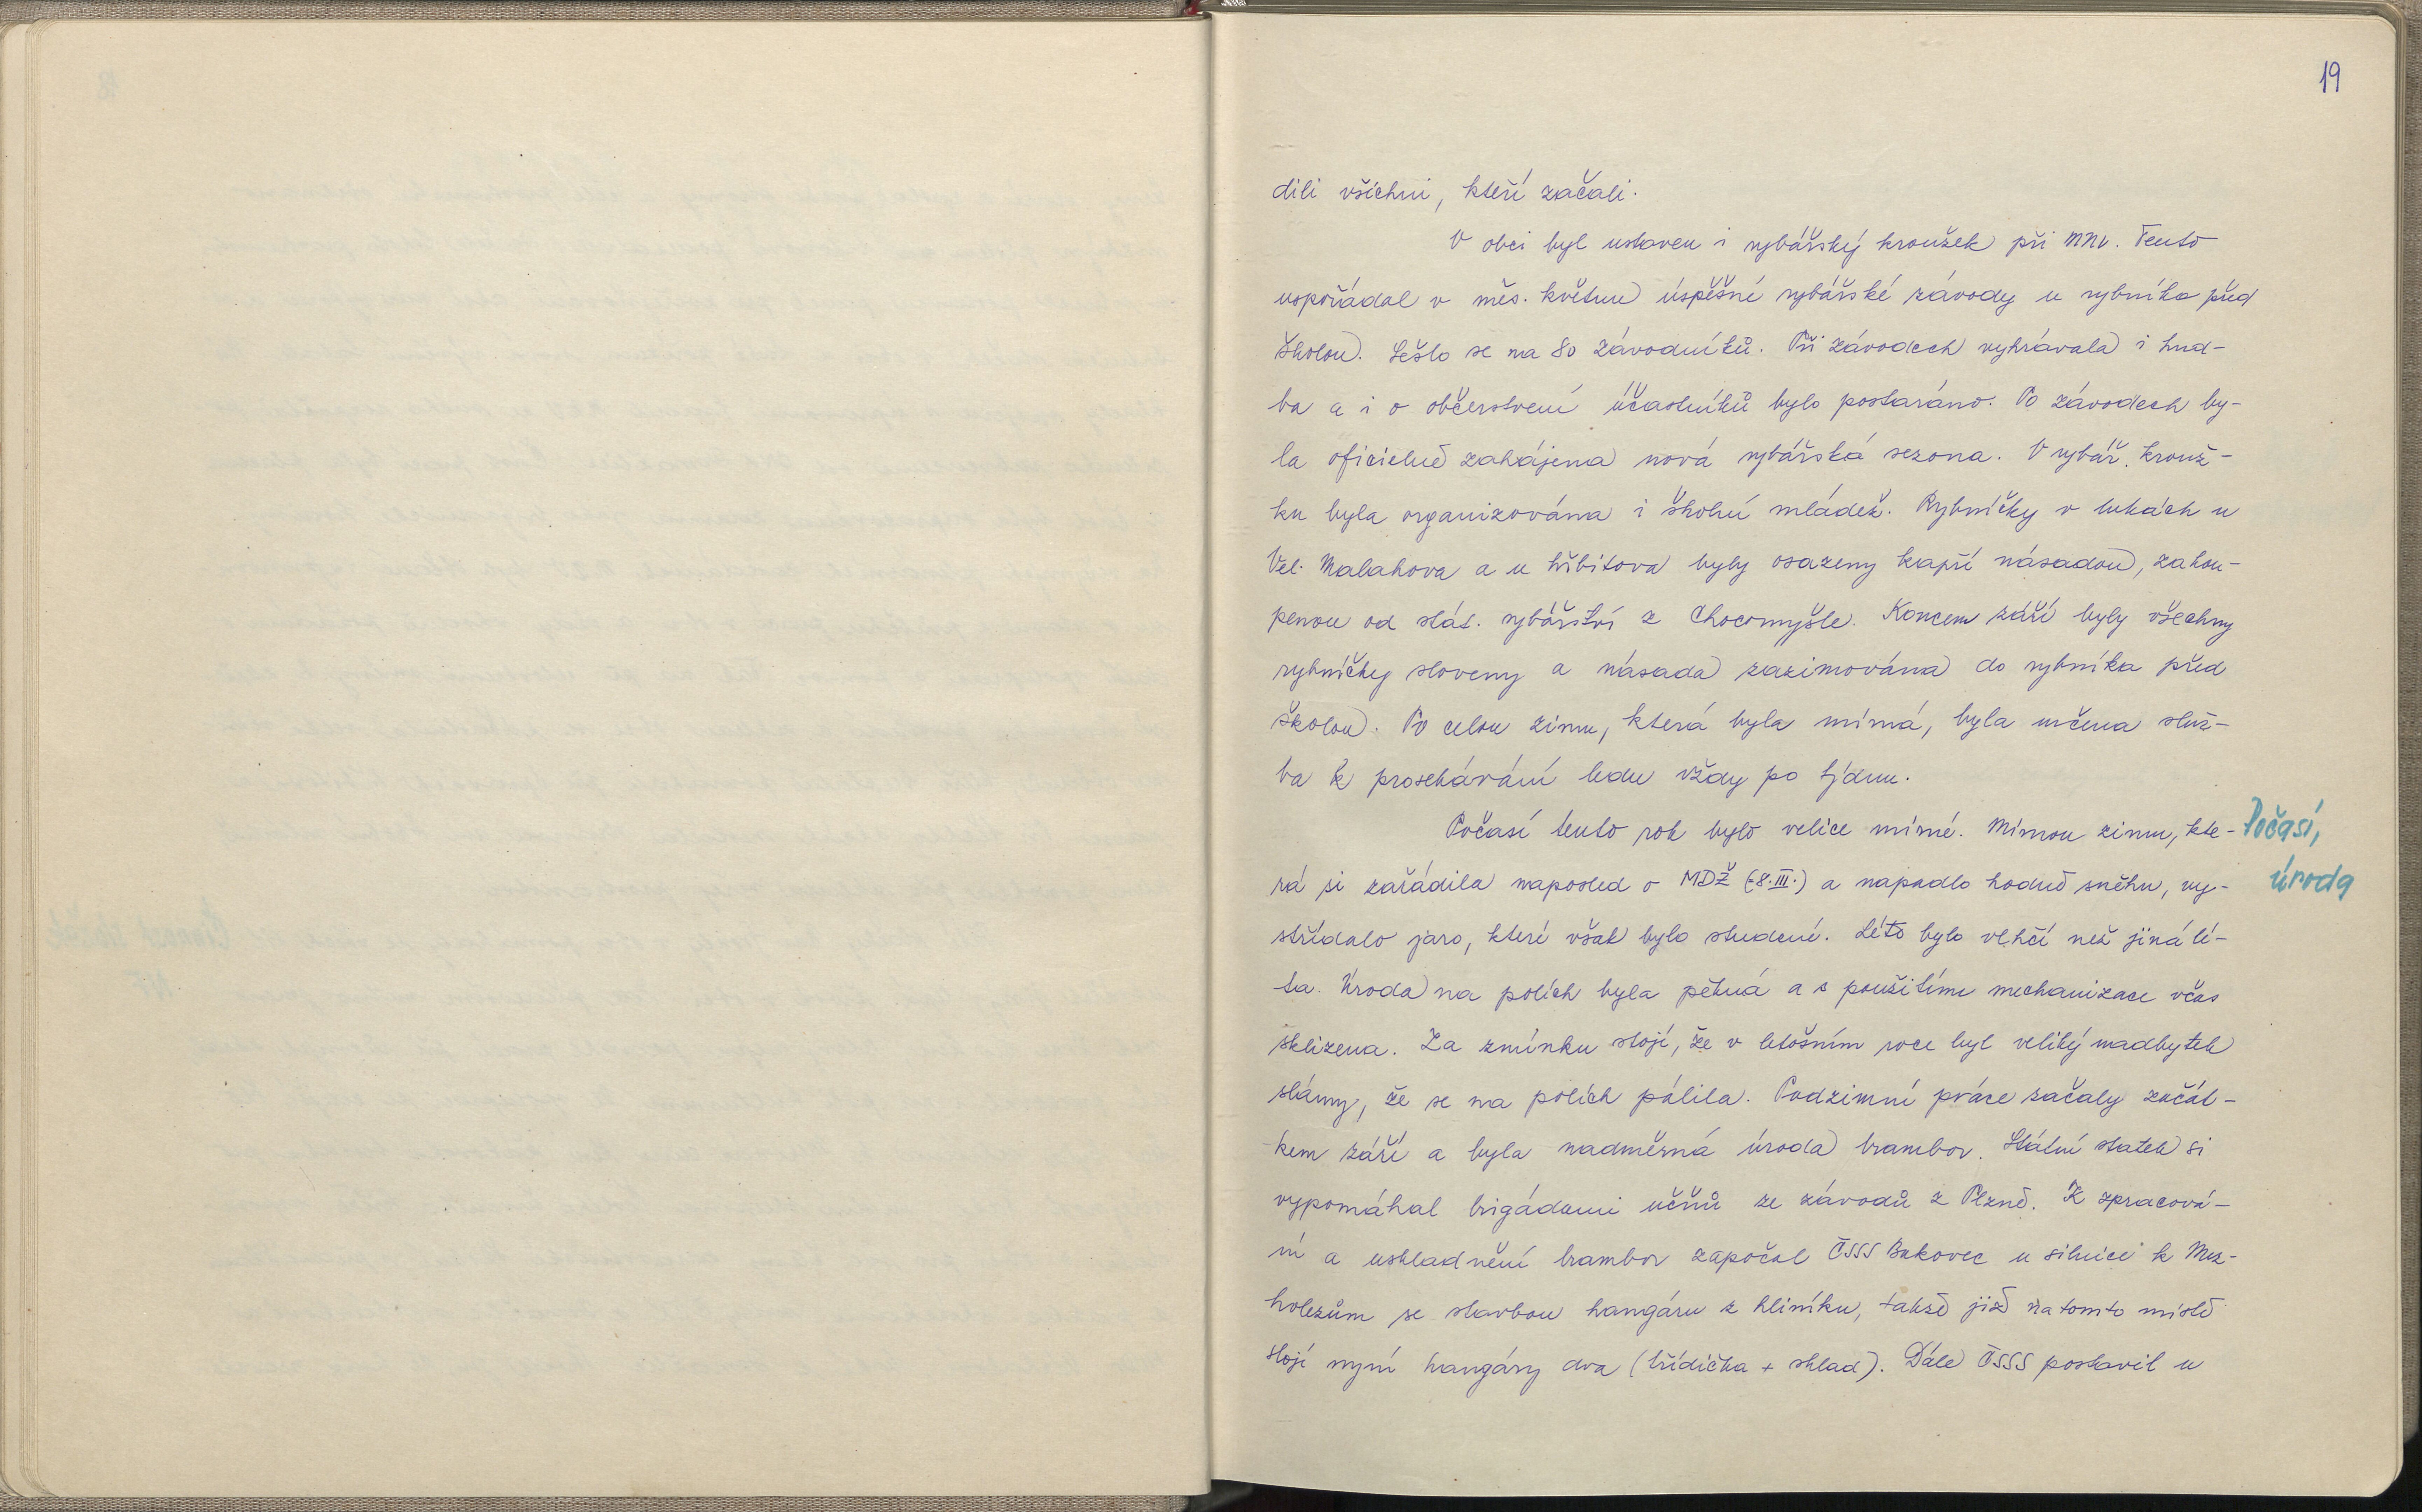 19
dili všichni, kteří začali.
V obci byl ustaven i rybářský kroužek při MNV. Tento
uspořádal v měs. květnu úspěšné rybářské závody u rybníka před
školou. Sešlo se na 80 závodníků. Při závodech vyhrávala i hud-
ba a i o občerstvení účastníků bylo postaráno. Po závodech by-
la oficielně zahájena nová rybářská sezona. V rybář. krouž-
ku byla organizována i školní mládež. Rybníčky v lukách u
Vel. Malahova a u hřbitova byly osazeny kapří násadou, zakou-
penou od stát. rybářství z Chocomyšle. Koncem září byly všechny
rybníčky sloveny a násada zazimována do rybníka před
školou. Po celou zimu, která byla mírná, byla určena služ-
ba k prosekávání ledu vždy po týdnu.
Počasí tento rok bylo velice mírné. Mírnou zimu, kte-
Počasí,
úroda
rá si zařádila naposled o MDŽ (8.III.) a napadlo hodně sněhu, vy-
střídalo jaro, které však bylo studené. Léto bylo vlhčí než jiná lé-
ta. Úroda na polích byla pěkná a s použitím mechanizace včas
sklizena. Za zmínku stojí, že v letošním roce byl veliký nadbytek
slámy, že se na polích pálila. Podzimní práce začaly začát-
kem září a byla nadměrná úroda brambor. Státní statek si
vypomáhal brigádami učňů ze závodů z Plzně. K zpracová-
ní a uskladnění brambor započal ČSSS Bukovec u silnice k Mez-
holezům se stavbou hangáru z hliníku, takže již na tomto místě
stojí nyní hangáry dva (třídička + sklad). Dále ČSSS postavil u